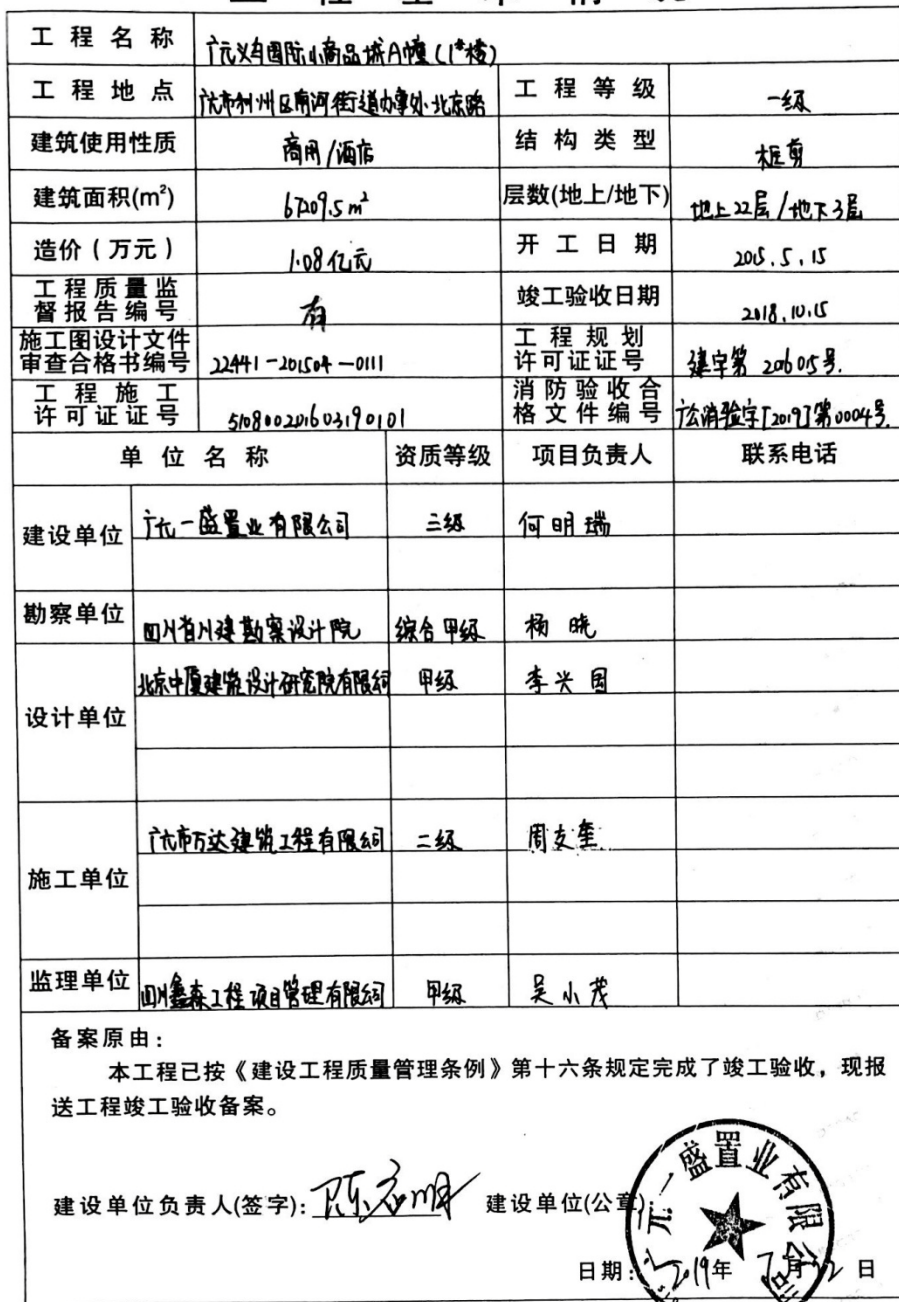 工程名称 广元义乌国际小商品城A幢(1#楼)
工程地点 广元市利州区南河街道办事处北京路 工程等级 一级
建筑使用性质 商用/酒店 结构类型 框剪
建筑面积(m²) 67209.5m² 层数(地上/地下) 地上22层/地下3层
造价(万元) 1.08亿元 开工日期 2015.5.15
工程质量监
督报告编号 有 竣工验收日期 2018.10.15
施工图设计文件
审查合格书编号 22441-201504-0111 工程规划
许可证证号 建字第 206015号.
工程施工
许可证证号 510800201603190101 消防验收合
格文件编号 广公消验字[2019]第0004号.
单位名称 资质等级 项目负责人 联系电话
建设单位 广元一盛置业有限公司 三级 何明瑞
勘察单位 四川省川建勘察设计院 综合甲级 杨晓
设计单位 北京中厦建筑设计研究院有限公司 甲级 李兴国
施工单位 广元市万达建筑工程有限公司 二级 周支奎
监理单位 四川鑫森工程项目管理有限公司 甲级 吴小茂
备案原由:
本工程已按《建设工程质量管理条例》第十六条规定完成了竣工验收,现报
送工程竣工验收备案。
建设单位负责人(签字): 建设单位(公章):
广元一盛置业有限公司
日期: 2019年7月22日